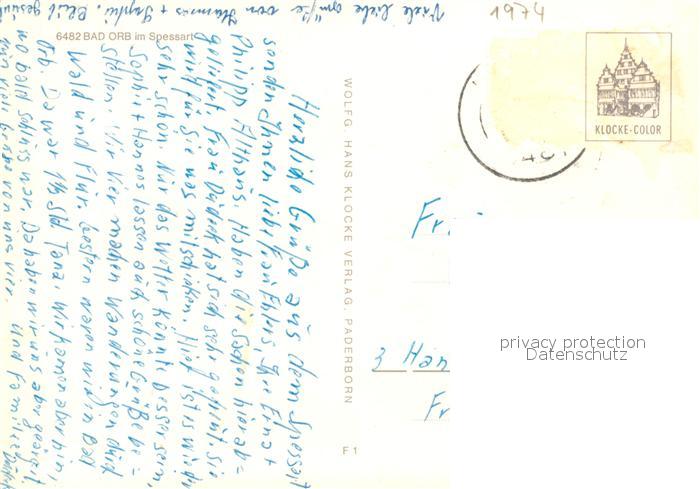 1974
Viele liebe Grüße von Hannes + Sophie Bleibt gesund
6482 BAD ORB im Spessart
Herzliche Grüße aus dem Spessart
senden Ihnen liebe Frau Ehlers Ihre Erna +
Philipp Althans. Haben die Sachen hier ab=
geliefert. Frau Düdeck hat sich sehr gefreut. Sie
wird für Sie was mitschicken. Hier ist es wieder
sehr schön. Nur das Wetter könnte besser sein.
Sophie + Hannes lassen auch schöne Grüße be=
stellen. Wir vier machen Wanderungen durch
Wald und Flur. Gestern waren wir in Bad
Orb. Da war 1½ Std Tanz. Wir kamen aber hin,
wo bald schluss war. Da haben wir uns aber geärgert.
Nun viele Grüße von uns vier.
und Familie
WOLFG. HANS KLOCKE VERLAG, PADERBORN
F 1
KLOCKE-COLOR
Fr
3 Han
Fr
privacy protection
Datenschutz